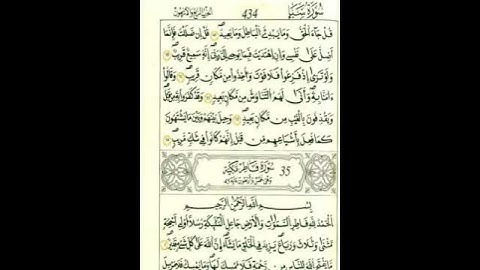 سُورَةُ سَبَإٍ 434 الجزء الثاني والعشرون
قُلْ جَاءَ الْحَقُّ وَمَا يُبْدِئُ الْبَاطِلُ وَمَا يُعِيدُ قُلْ إِنْ ضَلَلْتُ فَإِنَّمَا
أَضِلُّ عَلَى نَفْسِي وَإِنِ اهْتَدَيْتُ فَبِمَا يُوحِي إِلَيَّ رَبِّي إِنَّهُ سَمِيعٌ قَرِيبٌ
وَلَوْ تَرَى إِذْ فَزِعُوا فَلَا فَوْتَ وَأُخِذُوا مِنْ مَكَانٍ قَرِيبٍ وَقَالُوا
آمَنَّا بِهِ وَأَنَّى لَهُمُ التَّنَاوُشُ مِنْ مَكَانٍ بَعِيدٍ وَقَدْ كَفَرُوا بِهِ مِنْ قَبْلُ
وَيَقْذِفُونَ بِالْغَيْبِ مِنْ مَكَانٍ بَعِيدٍ وَحِيلَ بَيْنَهُمْ وَبَيْنَ مَا يَشْتَهُونَ
كَمَا فُعِلَ بِأَشْيَاعِهِمْ مِنْ قَبْلُ إِنَّهُمْ كَانُوا فِي شَكٍّ مُرِيبٍ
35 سُورَةُ فَاطِرٍ مَكِّيَّة
بِسْمِ اللَّهِ الرَّحْمَنِ الرَّحِيمِ
الْحَمْدُ لِلَّهِ فَاطِرِ السَّمَوَاتِ وَالْأَرْضِ جَاعِلِ الْمَلَائِكَةِ رُسُلًا أُولِي أَجْنِحَةٍ
مَثْنَى وَثُلَاثَ وَرُبَاعَ يَزِيدُ فِي الْخَلْقِ مَا يَشَاءُ إِنَّ اللَّهَ عَلَى كُلِّ شَيْءٍ قَدِيرٌ
مَا يَفْتَحِ اللَّهُ لِلنَّاسِ مِنْ رَحْمَةٍ فَلَا مُمْسِكَ لَهَا وَمَا يُمْسِكْ فَلَا مُرْسِلَ